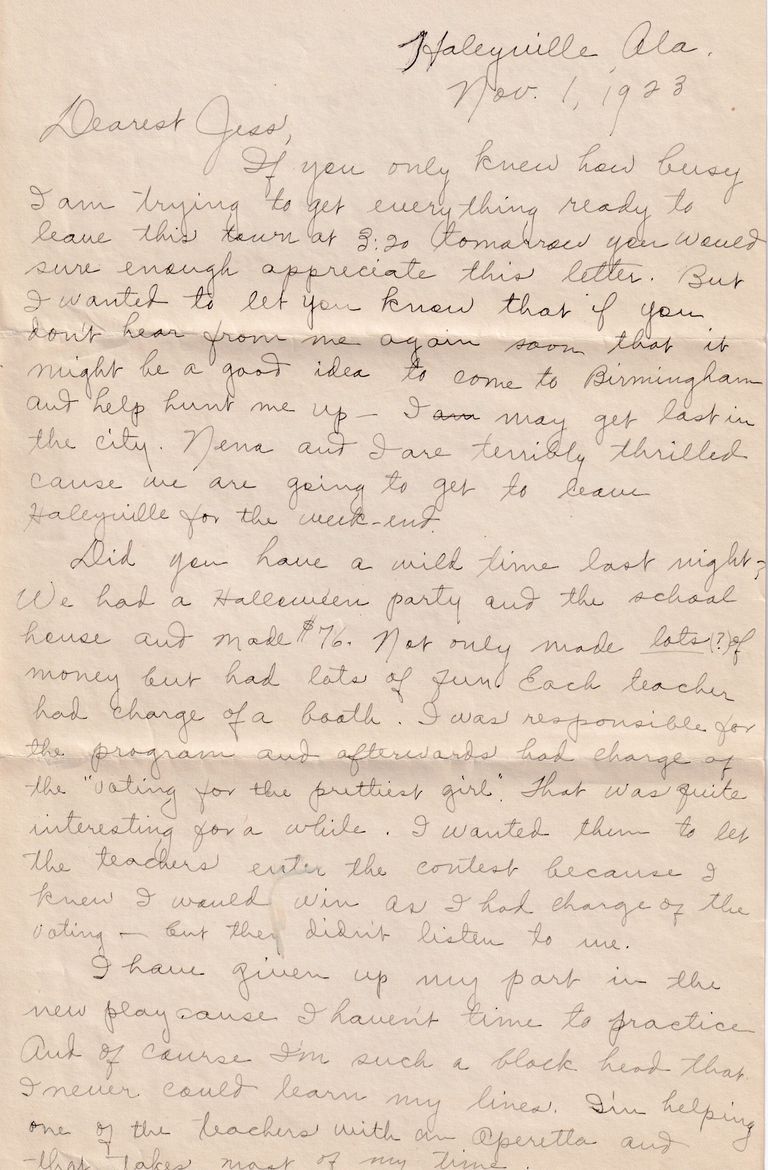 Haleyville, Ala.
Nov. 1, 1923
Dearest Jess,
If you only knew how busy
I am trying to get everything ready to
leave this town at 3:20 tomorrow you would
sure enough appreciate this letter. But
I wanted to let you know that if you
don't hear from me again soon that it
might be a good idea to come to Birmingham
and help hunt me up — I am may get lost in
the city. Nena and I are terribly thrilled
cause we are going to get to leave
Haleyville for the week-end.
Did you have a wild time last night?
We had a Halloween party and the school
house and made $76. Not only made lots(?) of
money but had lots of fun. Each teacher
had charge of a booth. I was responsible for
the program and afterwards had charge of
the "voting for the prettiest girl". That was quite
interesting for a while. I wanted them to let
the teachers enter the contest because I
knew I would win as I had charge of the
voting — but they didn't listen to me.
I have given up my part in the
new play cause I haven't time to practice
And of course I'm such a block head that
I never could learn my lines. I'm helping
one of the teachers with an Operetta and
that takes most of my time.